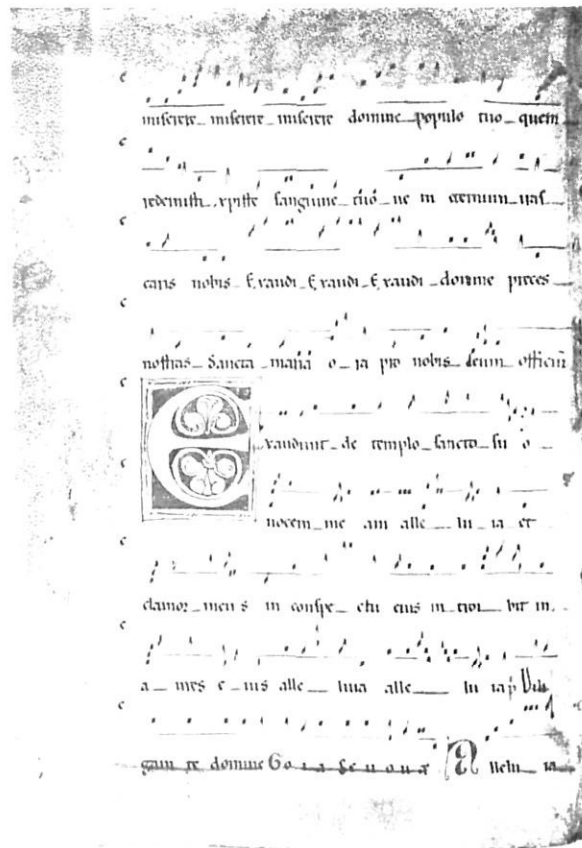 miserere miserere miserere domine populo tuo quem
redemisti xpiste sanguine tuo ne in eternum iras
caris nobis Exaudi Exaudi Exaudi domine preces
nostras Sancta maria o ra pro nobis officiu
Exaudiuit de templo sancto su o
uocem me am alle lu ia et
clamor meu s in conspe ctu eius in troi bit in
a ures e ius alle luia alle lu ia p Dili
gam te domine Go ia